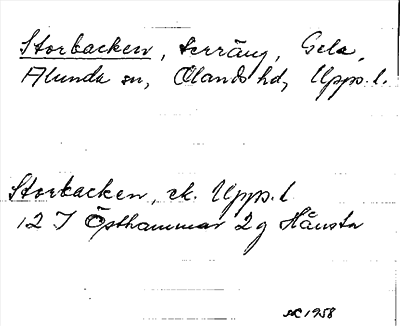 Storbacken, terräng, Gela,
Alunda sn, Olands hd, Upps. l.
Storbacken, ek. Upps. l
12 I Östhammar 2g Hånsta
AC 1958